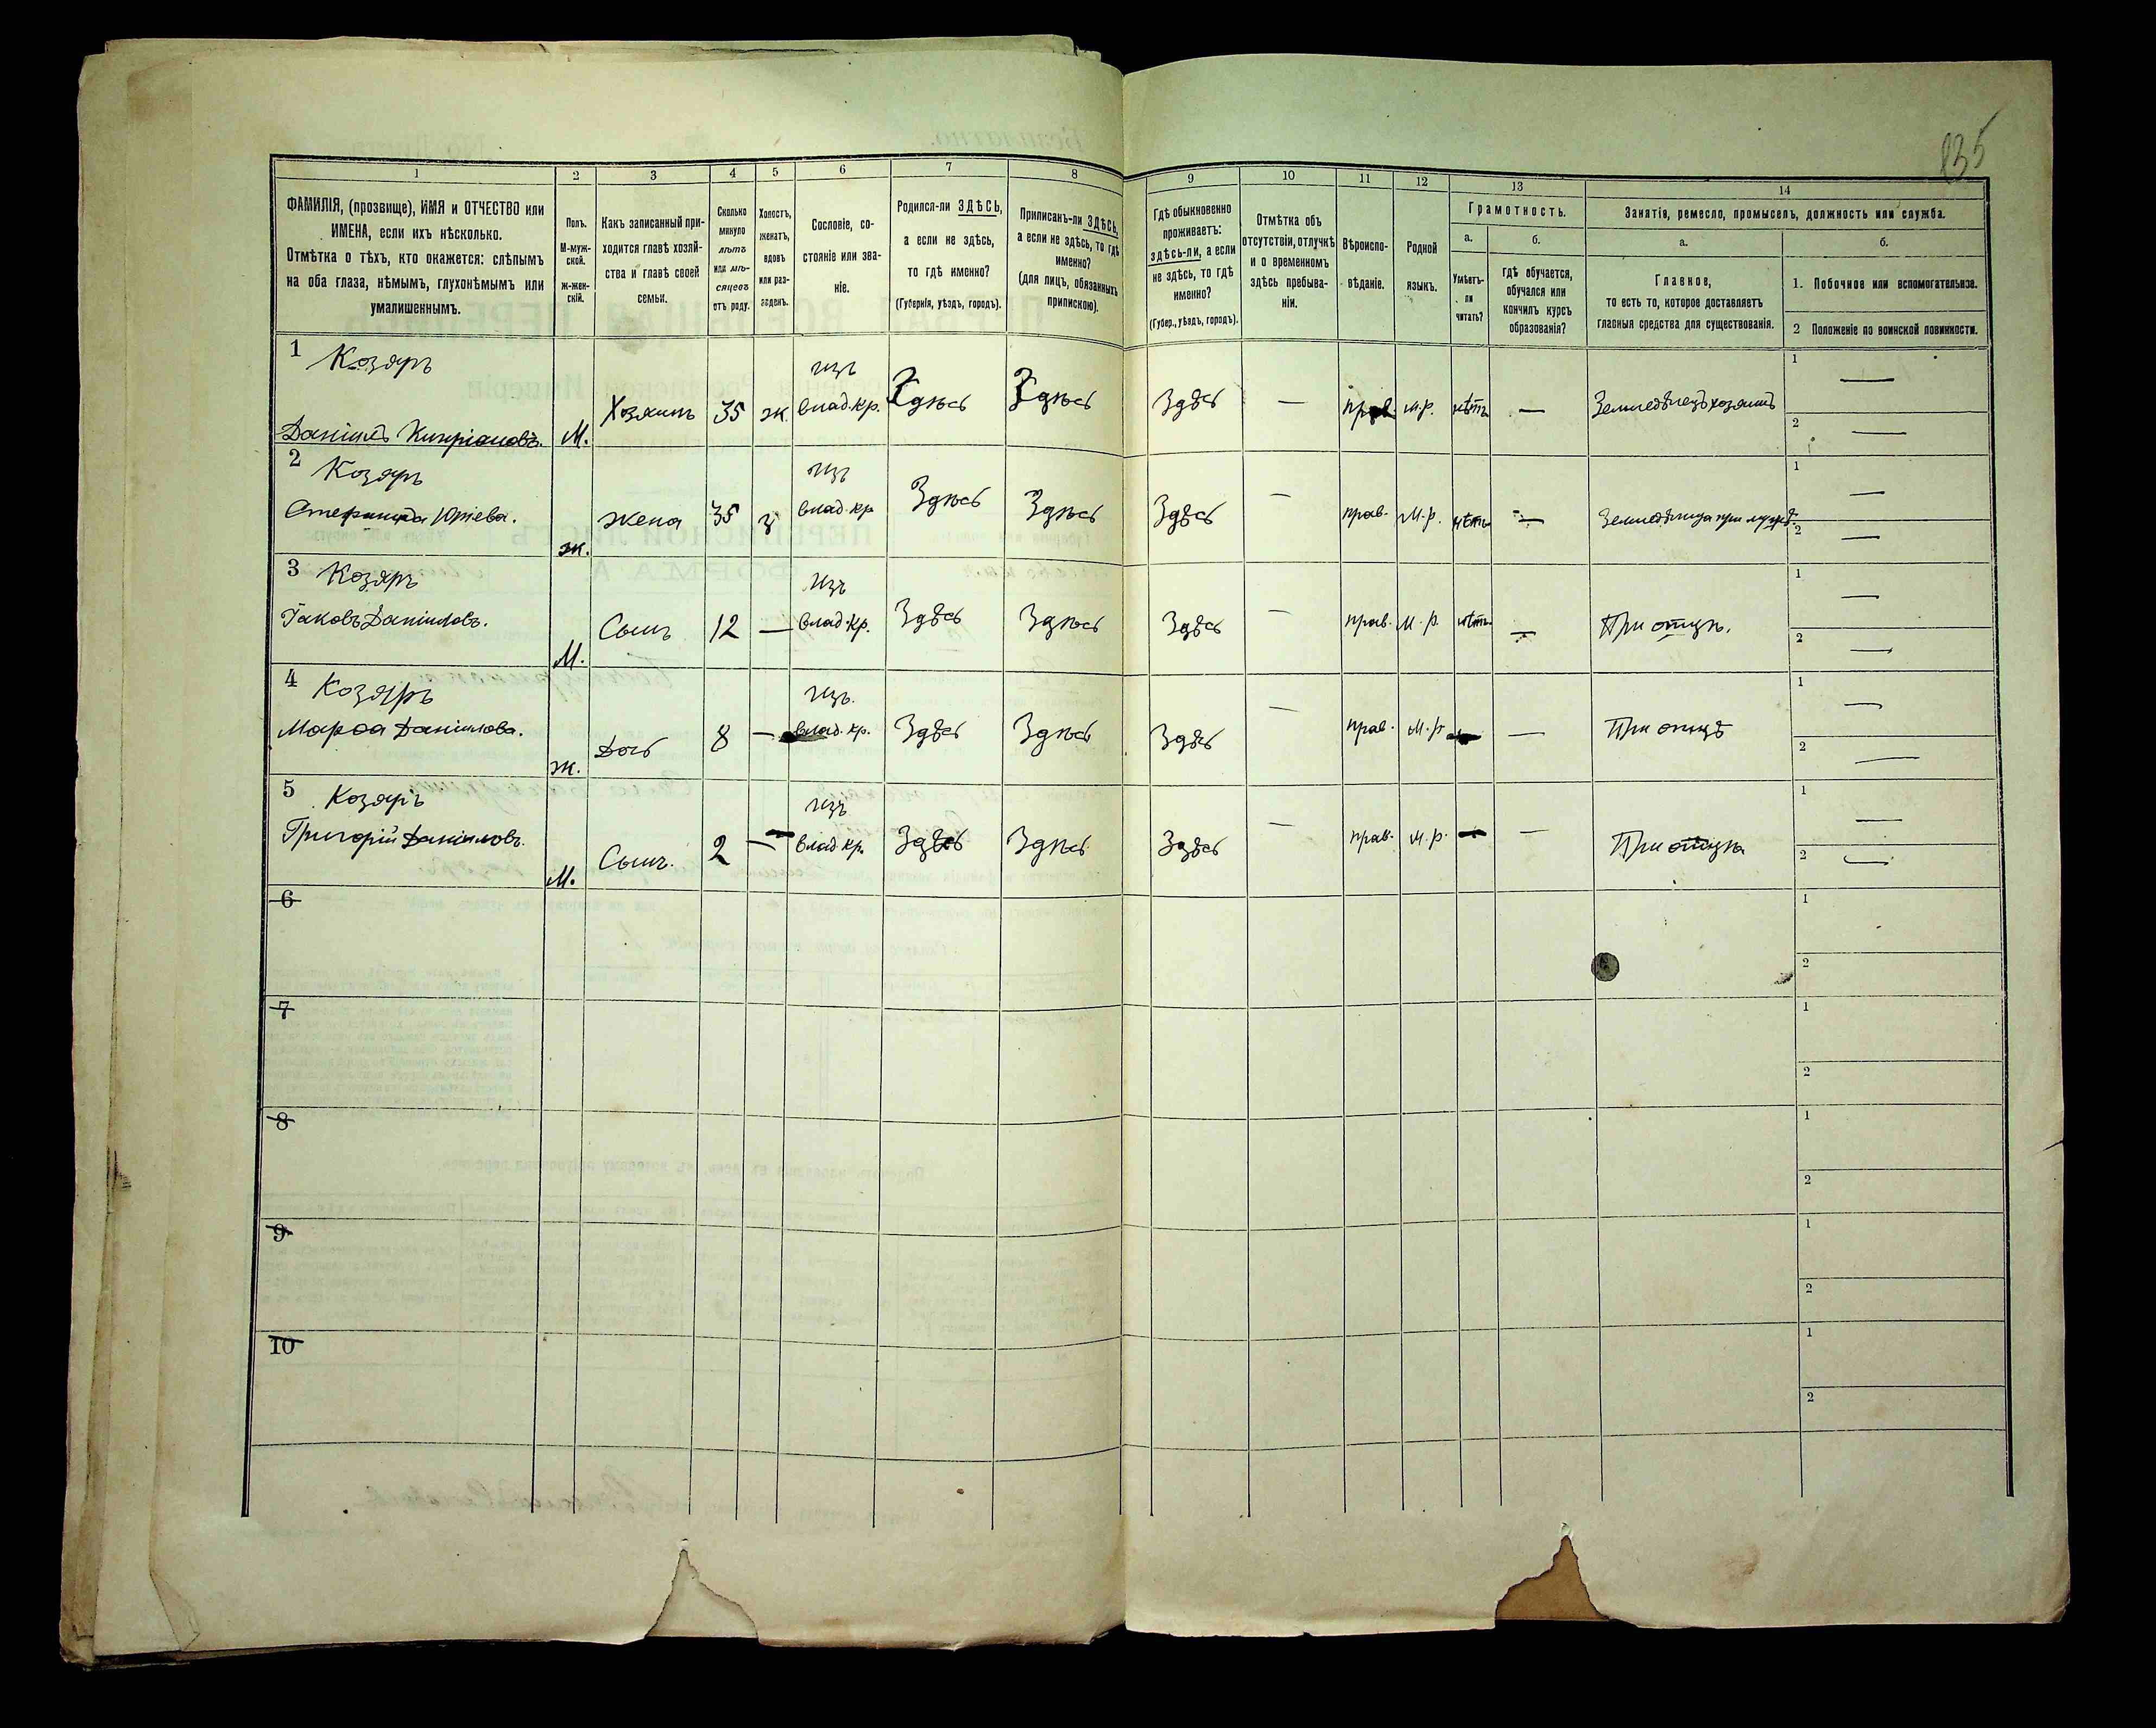 135
1
2
3
4
5
6
7
8
9
10
11
12
13
14
ФАМИЛІЯ, (прозвище), ИМЯ и ОТЧЕСТВО или
ИМЕНА, если ихъ нѣсколько.
Отмѣтка о тѣхъ, кто окажется: слѣпымъ
на оба глаза, нѣмымъ, глухонѣмымъ или
умалишеннымъ.
Полъ.
М-муж-
ской.
Ж-жен-
скій.
Какъ записанный при-
ходится главѣ хозяй-
ства и главѣ своей
семьи.
Сколько
минуло
лѣтъ
или мѣ-
сяцевъ
отъ роду.
Холостъ,
женатъ,
вдовъ
или раз-
веденъ.
Сословіе, со-
стояніе или зва-
ніе.
Родился-ли ЗДѢСЬ,
а если не здѣсь,
то гдѣ именно?
(Губернія, уѣздъ, городъ).
Приписанъ-ли ЗДѢСЬ,
а если не здѣсь, то гдѣ
именно?
(для лицъ, обязанныхъ
припискою).
Гдѣ обыкновенно
проживаетъ:
здѣсь-ли, а если
не здѣсь, то гдѣ
именно?
(Губер., уѣздъ, городъ).
Отмѣтка объ
отсутствіи, отлучкѣ
и о временномъ
здѣсь пребыва-
ніи.
Вѣроиспо-
вѣданіе.
Родной
языкъ.
Грамотность.
а.
Умѣетъ-
ли
читать?
б.
гдѣ обучается,
обучался или
кончилъ курсъ
образованія?
Занятія, ремесло, промыселъ, должность или служба.
а.
Главное,
то есть то, которое доставляетъ
главныя средства для существованія.
б.
1. Побочное или вспомогательное.
2 Положеніе по воинской повинности.
1 Козяръ
Даніилъ Кипріановъ. М. Хозяинъ 35 ж. изъ влад. кр. Здѣсь Здѣсь Здѣсь — прав. м.р. нѣтъ — Земледѣлецъ хозяинъ 1 — 2 —
2 Козяръ
Юріева. ж. жена 35 з изъ влад. кр. Здѣсь Здѣсь Здѣсь — прав. м.р. нѣтъ — Земледѣлица при мужѣ. 1 — 2 —
3 Козяръ
Іаковъ Даніиловъ. М. Сынъ 12 — изъ влад. кр. Здѣсь Здѣсь Здѣсь — прав. м.р. нѣтъ — При отцѣ. 1 — 2 —
4 Козяръ
Марѳа Даніилова. ж. Дочь 8 — изъ влад. кр. Здѣсь Здѣсь Здѣсь — прав. м.р. — — При отцѣ 1 — 2 —
5 Козяръ
Григорій Даніиловъ. М. Сынъ. 2 — изъ влад. кр. Здѣсь Здѣсь Здѣсь — прав. м.р. — — При отцѣ 1 — 2 —
6 1 2
7 1 2
8 1 2
9 1 2
10 1 2